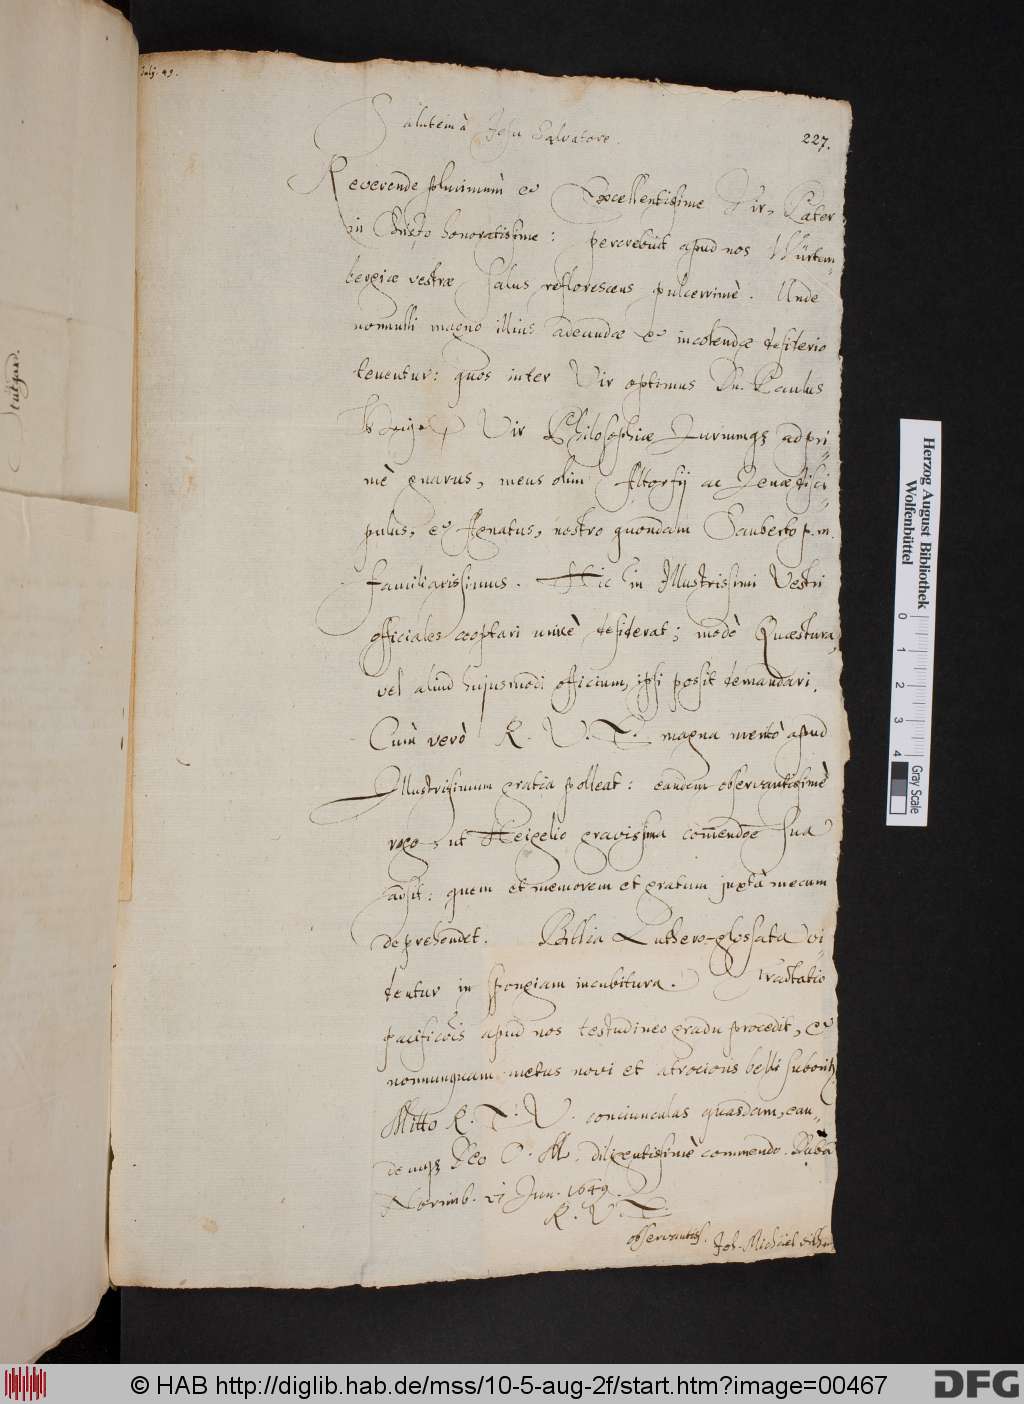 July. 49.
227.
Salutem à Jesu Salvatore.
Reverende plurimùm & Excellentissime Vir, Pater
in Christo honoratissime: percrebuit apud nos Würtem-
bergicæ vestræ salus reflorescens pulcerrimè. Unde
nonnulli magno illius adeundæ & incolendæ desiderio
tenentur: quos inter Vir optimus Dn. Paulus
Heigel, Vir Philosophiæ Juriumqꝫ adpri-
mè gnarus, meus olim Altorfij ac Jenæ disci-
pulus, & Penatus, nostro quondam Sauberto p. m.
familiarissimus. Hic in Illustrissimi Vestri
officiales cooptari unicè desiderat; modò Quæstura,
vel aliud hujusmodi officium, ipsi possit demandari.
Cùm verò R. V. T. magna meritò apud
Illustrissimum gratia polleat: eandem observantissimè
rogo, ut Heigelio gravissima com̄endōe sua
adsit: quem et memorem et gratum juxtà mecum
deprehendet. Biblia Luthero-glossata vi-
dentur in spongiam incubitura. Tractatio
pacificōis apud nos testudineo gradu procedit, &
nonnunquam metus novi et atrocioris belli suborit
Mitto R. T. V. conciunculas quasdam, ean-
demqꝫ Deo O. M. diligentissimè commendo. Dabā
Norimb. vi Jun. 1649.
R. V. T.
observantiss. Joh. Michael Dilherr
Stutgard.
Herzog August Bibliothek
Wolfenbüttel
0 1 2 3 4
Gray Scale
© HAB http://diglib.hab.de/mss/10-5-aug-2f/start.htm?image=00467
DFG